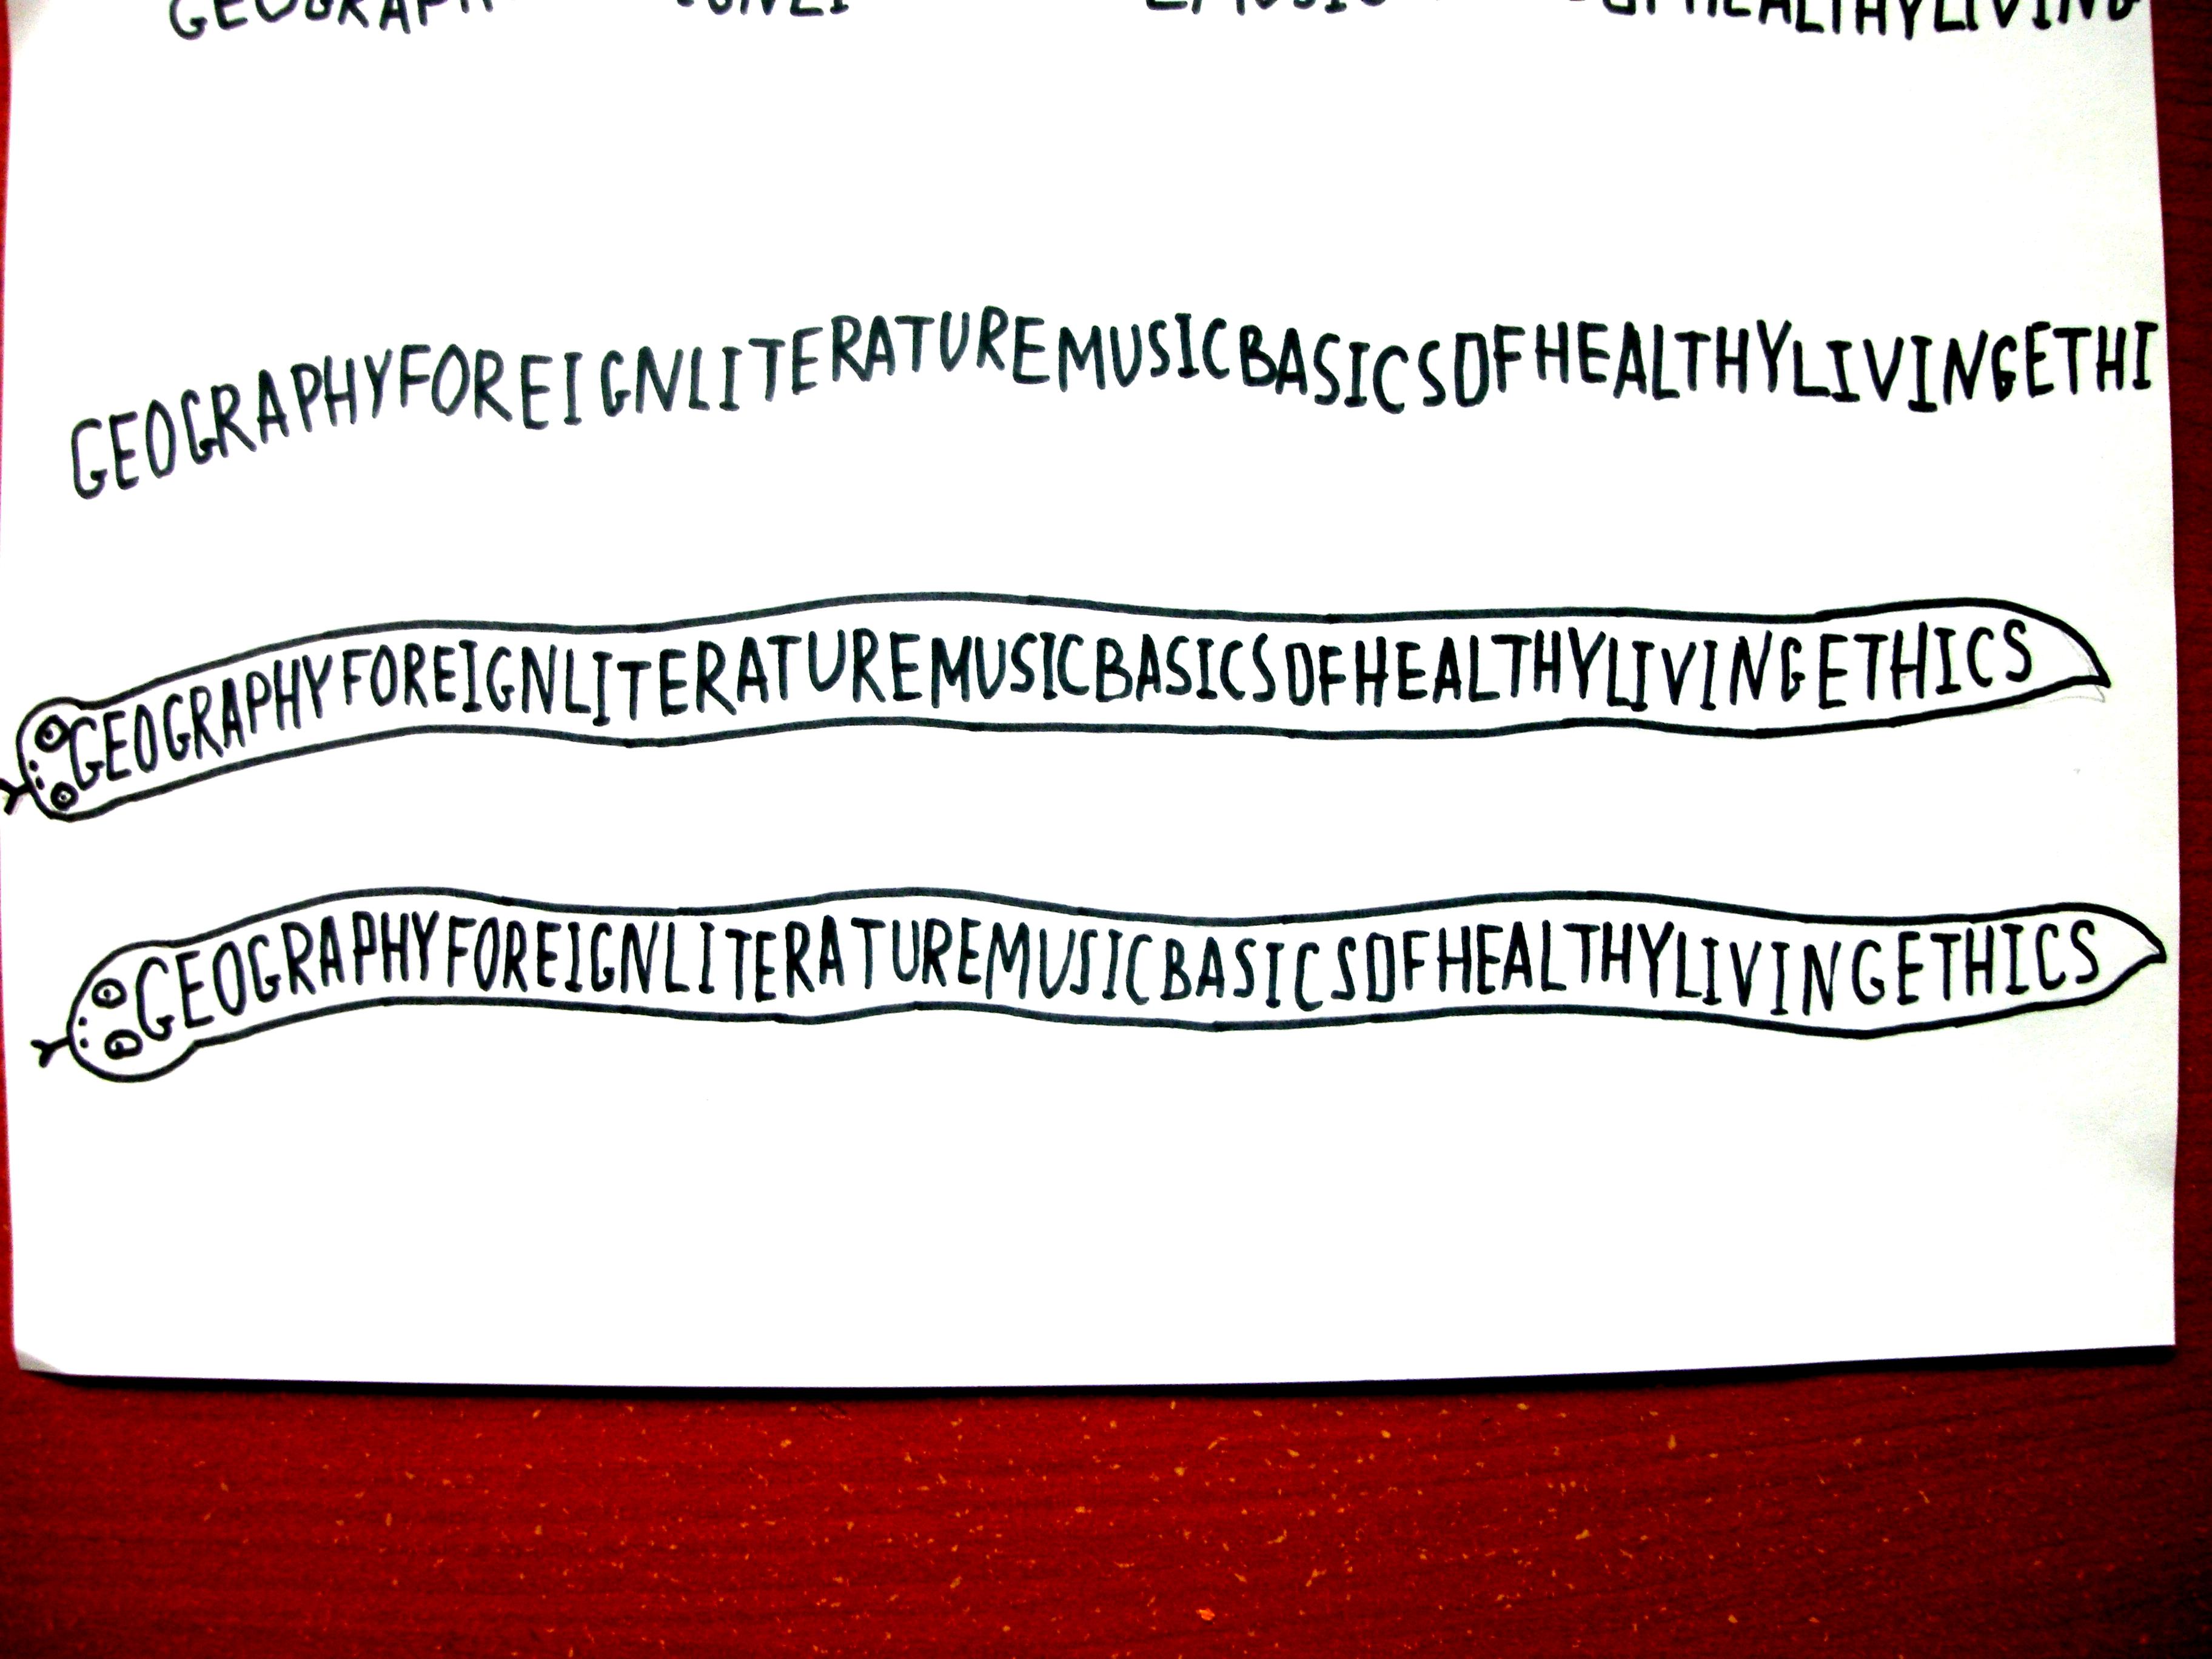 GEOGRAPHYFOREIGNLITERATUREMUSICBASICSOFHEALTHYLIVINGETHI
GEOGRAPHYFOREIGNLITERATUREMUSICBASICSOFHEALTHYLIVINGETHICS
GEOGRAPHYFOREIGNLITERATUREMUSICBASICSOFHEALTHYLIVINGETHICS